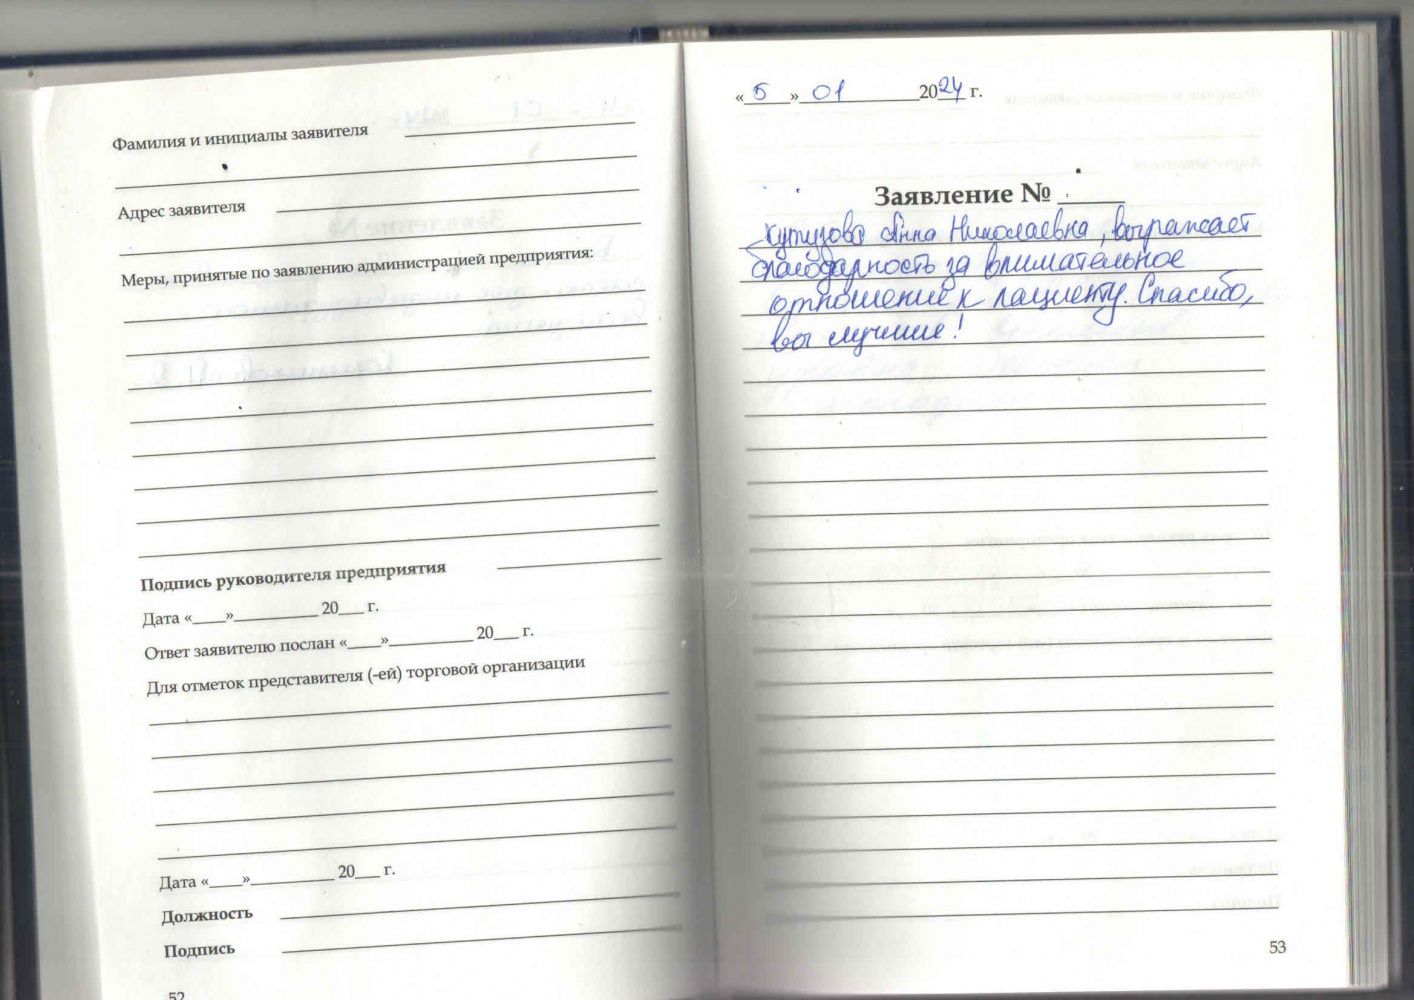 Фамилия и инициалы заявителя
Адрес заявителя
Меры, принятые по заявлению администрацией предприятия:
Подпись руководителя предприятия
Дата «___»__________ 20___ г.
Ответ заявителю послан «___»__________ 20___ г.
Для отметок представителя (-ей) торговой организации
Дата «___»__________ 20___ г.
Должность
Подпись
52
«5» 01 2024 г.
Заявление № ____
Кутузова Анна Николаевна, выражает
благодарность за внимательное
отношение к пациенту. Спасибо,
вы лучшие!
53